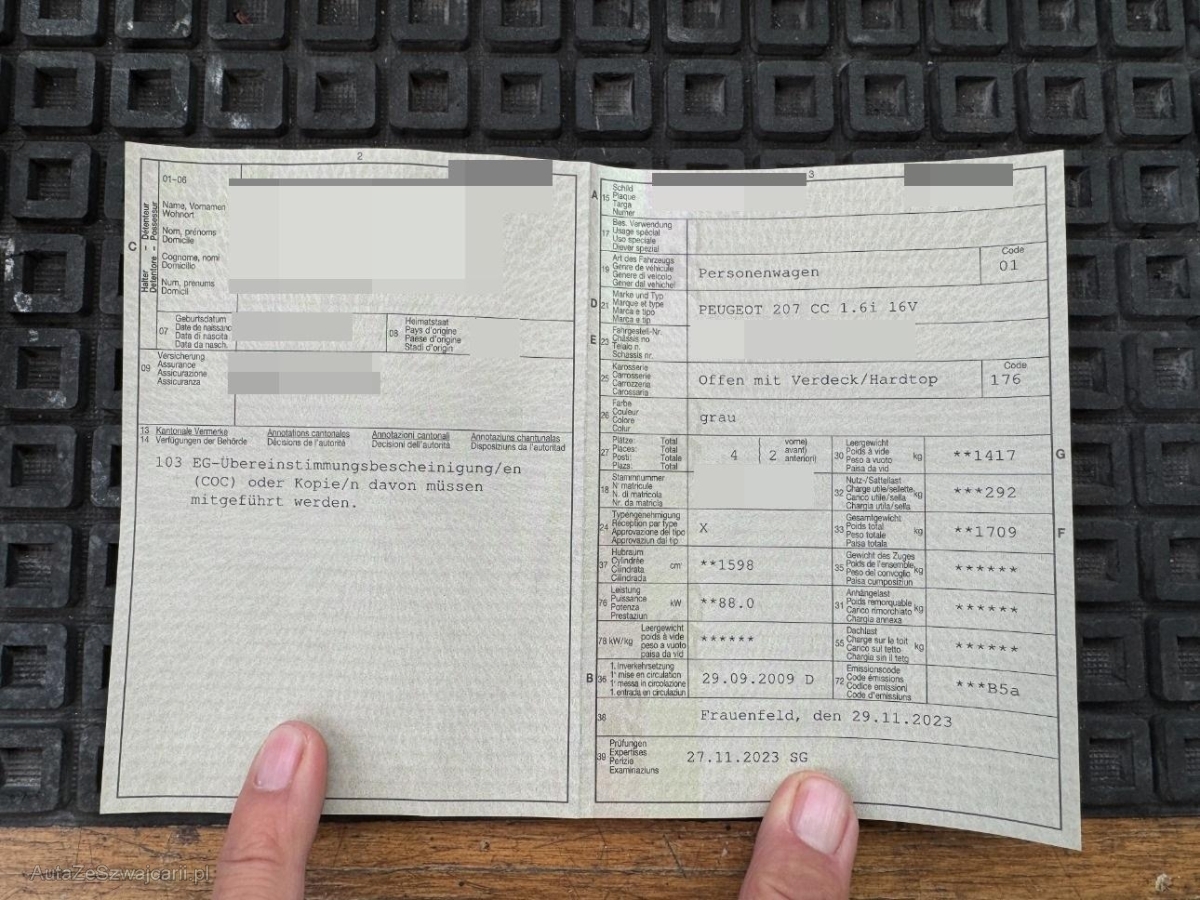 2
01-06
C
Halter - Détenteur
Detentore - Possessur
Name, Vornamen
Wohnort
Nom, prénoms
Domicile
Cognome, nomi
Domicilio
Num, prenums
Domicil
07
Geburtsdatum
Date de naissanc
Data di nascita
Data da nasch.
08
Heimatstaat
Pays d'origine
Paese d'origine
Stadi d'origin
09
Versicherung
Assurance
Assicurazione
Assicuranza
13 Kantonale Vermerke
Annotations cantonales
Annotazioni cantonali
Annotaziuns chantunalas
14 Verfügungen der Behörde
Décisions de l'autorité
Decisioni dell'autorità
Disposiziuns da l'autoritad
103 EG-Übereinstimmungsbescheinigung/en
(COC) oder Kopie/n davon müssen
mitgeführt werden.
3
A 15
Schild
Plaque
Targa
Numer
17
Bes. Verwendung
Usage spécial
Uso speciale
Diever spezial
19
Art des Fahrzeugs
Genre de véhicule
Genere di veicolo
Gener dal vehichel
Personenwagen
Code
01
D 21
Marke und Typ
Marque et type
Marca e tipo
Marca e tip
PEUGEOT 207 CC 1.6i 16V
E 23
Fahrgestell-Nr.
Châssis no
Telaio n.
Schassis nr.
25
Karosserie
Carrosserie
Carrozzeria
Carossaria
Offen mit Verdeck/Hardtop
Code
176
26
Farbe
Couleur
Colore
Colur
grau
27
Plätze: Total
Places: Total
Posti: Totale
Plazs: Total
4
2
vorne)
avant)
anteriori)
18
Stammnummer
N° matricule
N. di matricola
Nr. da matricla
24
Typengenehmigung
Réception par type
Approvazione del tipo
Approvaziun dal tip
X
37
Hubraum
Cylindrée
Cilindrata
Cilindrada
cm³
**1598
76
Leistung
Puissance
Potenza
Prestaziun
kW
**88.0
78 kW/kg
Leergewicht
poids à vide
peso a vuoto
paisa da vid
******
B 36
1. Inverkehrsetzung
1ʳᵉ mise en circulation
1ª messa in circolazione
1. entrada en circulaziun
29.09.2009 D
30
Leergewicht
Poids à vide
Peso a vuoto
Paisa da vid
kg
**1417
G
32
Nutz-/Sattellast
Charge utile/sellette
Carico utile/sella
Chargia utila/sella
kg
***292
33
Gesamtgewicht
Poids total
Peso totale
Paisa totala
kg
**1709
F
35
Gewicht des Zuges
Poids de l'ensemble
Peso del convoglio
Paisa cumposiziun
kg
******
31
Anhängelast
Poids remorquable
Carico rimorchiato
Chargia annexa
kg
******
55
Dachlast
Charge sur le toit
Carico sul tetto
Chargia sin il tetg
kg
******
72
Emissionscode
Code émissions
Codice emissioni
Code d'emissiuns
***B5a
38
Frauenfeld, den 29.11.2023
39
Prüfungen
Expertises
Perizie
Examinaziuns
27.11.2023 SG
AutaZeSzwajcarii.pl